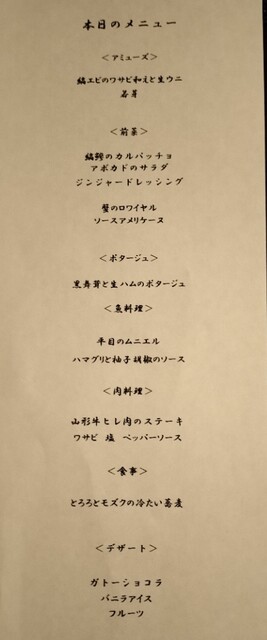 本日のメニュー
<アミューズ>
縞エビのワサビ和えと生ウニ
若芽
<前菜>
縞鯵のカルパッチョ
アボカドのサラダ
ジンジャードレッシング
蟹のロワイヤル
ソースアメリケーヌ
<ポタージュ>
黒舞茸と生ハムのポタージュ
<魚料理>
平目のムニエル
ハマグリと柚子胡椒のソース
<肉料理>
山形牛ヒレ肉のステーキ
ワサビ 塩 ペッパーソース
<食事>
とろろとモズクの冷たい蕎麦
<デザート>
ガトーショコラ
バニラアイス
フルーツ